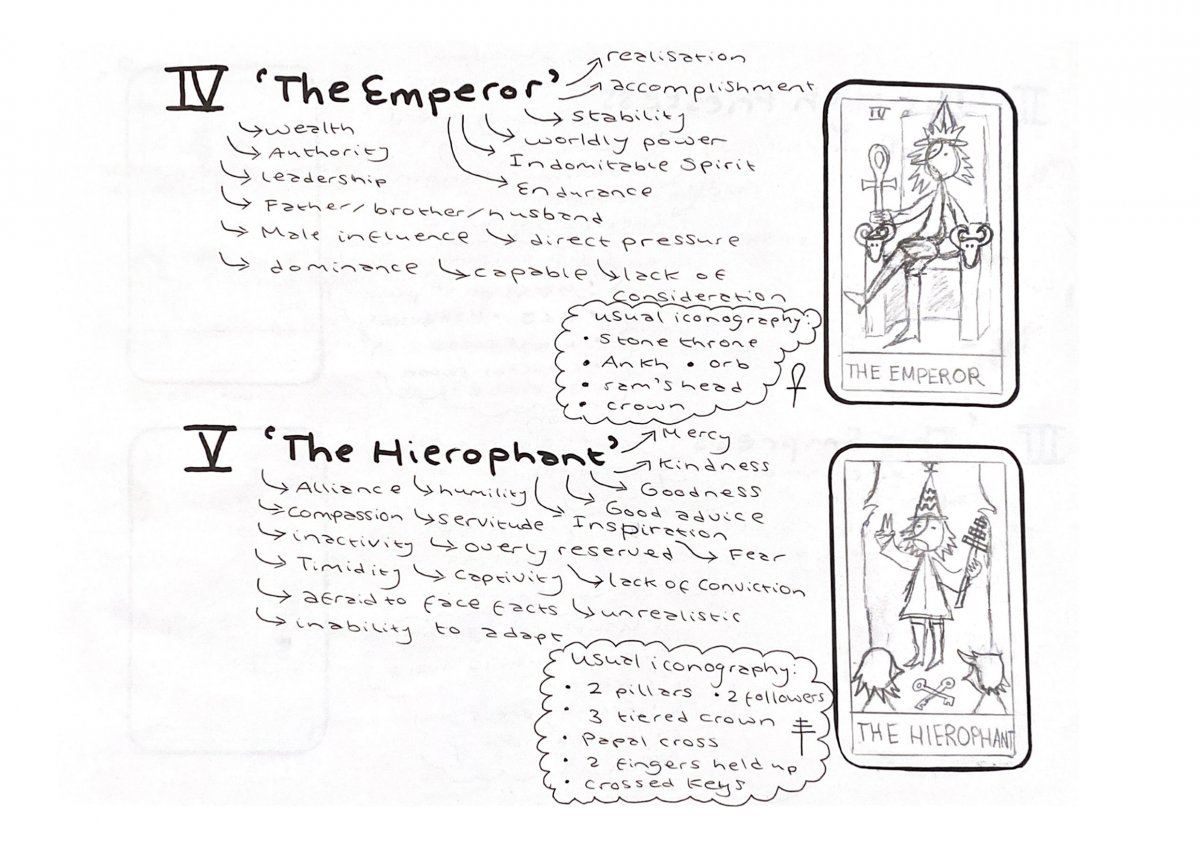 IV 'The Emperor'
→ realisation
→ accomplishment
→ stability
→ worldly power
→ Indomitable Spirit
→ Endurance
→ wealth
→ Authority
→ leadership
→ Father/brother/husband
→ Male influence → direct pressure
→ dominance → capable → lack of
consideration
usual iconography:
• stone throne
• Ankh • orb
• ram's head
• crown
IV
THE EMPEROR
V 'The Hierophant'
→ Mercy
→ Kindness
→ Goodness
→ Good advice
→ Inspiration
→ Alliance → humility
→ Compassion → servitude
→ inactivity → overly reserved → Fear
→ Timidity → Captivity → lack of conviction
→ afraid to face facts → unrealistic
→ inability to adapt
usual iconography:
• 2 pillars • 2 followers
• 3 tiered crown
• Papal cross
• 2 fingers held up
• Crossed Keys
V
THE HIEROPHANT